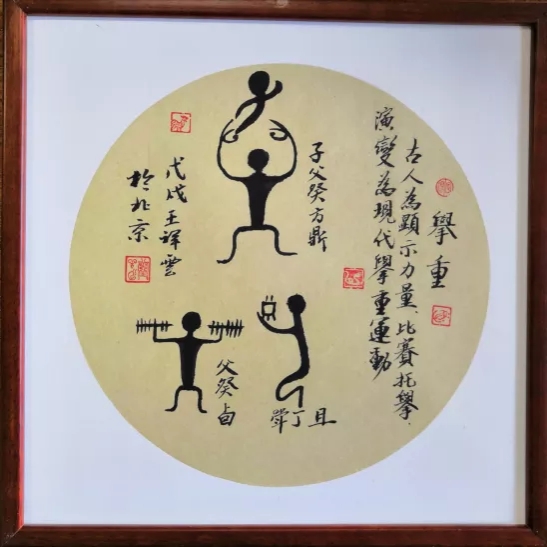 舉重
古人為顯示力量、比賽托舉，
演變為現代舉重運動
子父癸方鼎
父癸卣
丁且
戊戌王祥雲
於北京